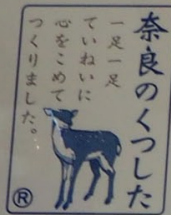 奈良のくつした
一足一足
ていねいに
心をこめて
つくりました。
®